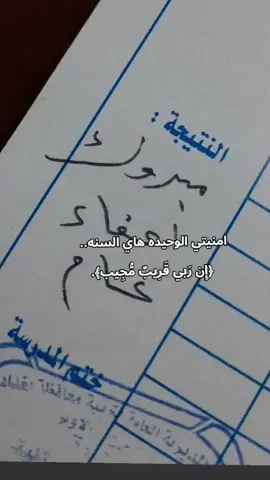 النتيجة :
مبروك
أعفاء
عام
امنيتي الوحيده هاي السنه..
{إن رَبي قَريبٌ مُجيب}.
ختم المدرسة
المديرية العامة لتربية محافظة